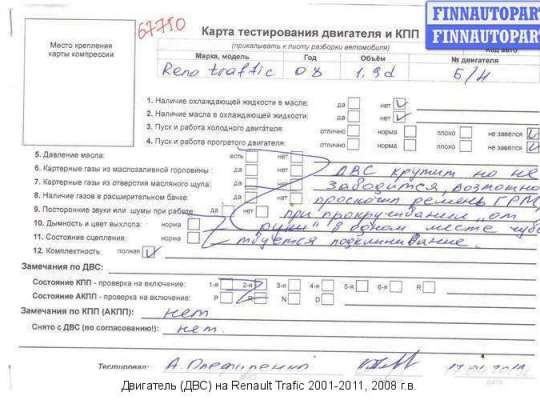 FINNAUTOPART
FINNAUTOPART
67750
Место крепления
карты компрессии
Карта тестирования двигателя и КПП
(прикалывать к листу разборки автомобиля)
Марка, модель Год Объём № двигателя
Reno traffic 08 1,9d Б/Н
1. Наличие охлаждающей жидкости в масле: да нет
2. Наличие масла в охлаждающей жидкости: да нет
3. Пуск и работа холодного двигателя: отлично норма плохо не завелся
4. Пуск и работа прогретого двигателя: отлично норма плохо не завелся
5. Давление масла: есть нет
6. Картерные газы из маслозаливной горловины: да нет ДВС крутит но не
7. Картерные газы из отверстия масляного щупа: да нет заводится, возможно
8. Наличие газов в расширительном бачке: да нет проскочил ремень ГРМ,
9. Посторонние звуки или шумы при работе да нет при прокручивании "от
10. Дымность и цвет выхлопа: норма руки" в одном месте чувс
11. Состояние сцепления: норма твуется подклинивание.
12. Комплектность полная
Замечания по ДВС:
Состояние КПП - проверка на включение: 1-я 2-я 3-я 4-я 5-я 6-я R
Состояние АКПП - проверка на включение: P R N D
Замечания по КПП (АКПП): нет
Снято с ДВС (по согласованию!): нет.
Тестировал: А.
Двигатель (ДВС) на Renault Trafic 2001-2011, 2008 г.в.